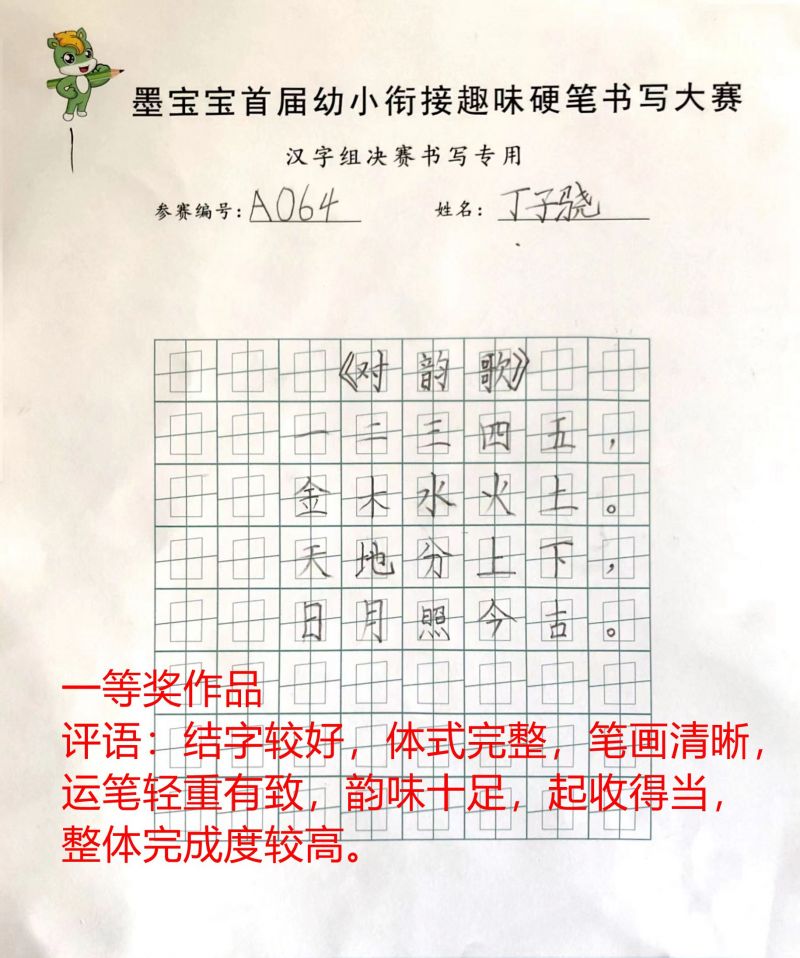 墨宝宝首届幼小衔接趣味硬笔书写大赛
汉字组决赛书写专用
参赛编号：A064 姓名：丁子骁
《对韵歌》
一二三四五，
金木水火土。
天地分上下，
日月照今古。
一等奖作品
评语：结字较好，体式完整，笔画清晰，
运笔轻重有致，韵味十足，起收得当，
整体完成度较高。